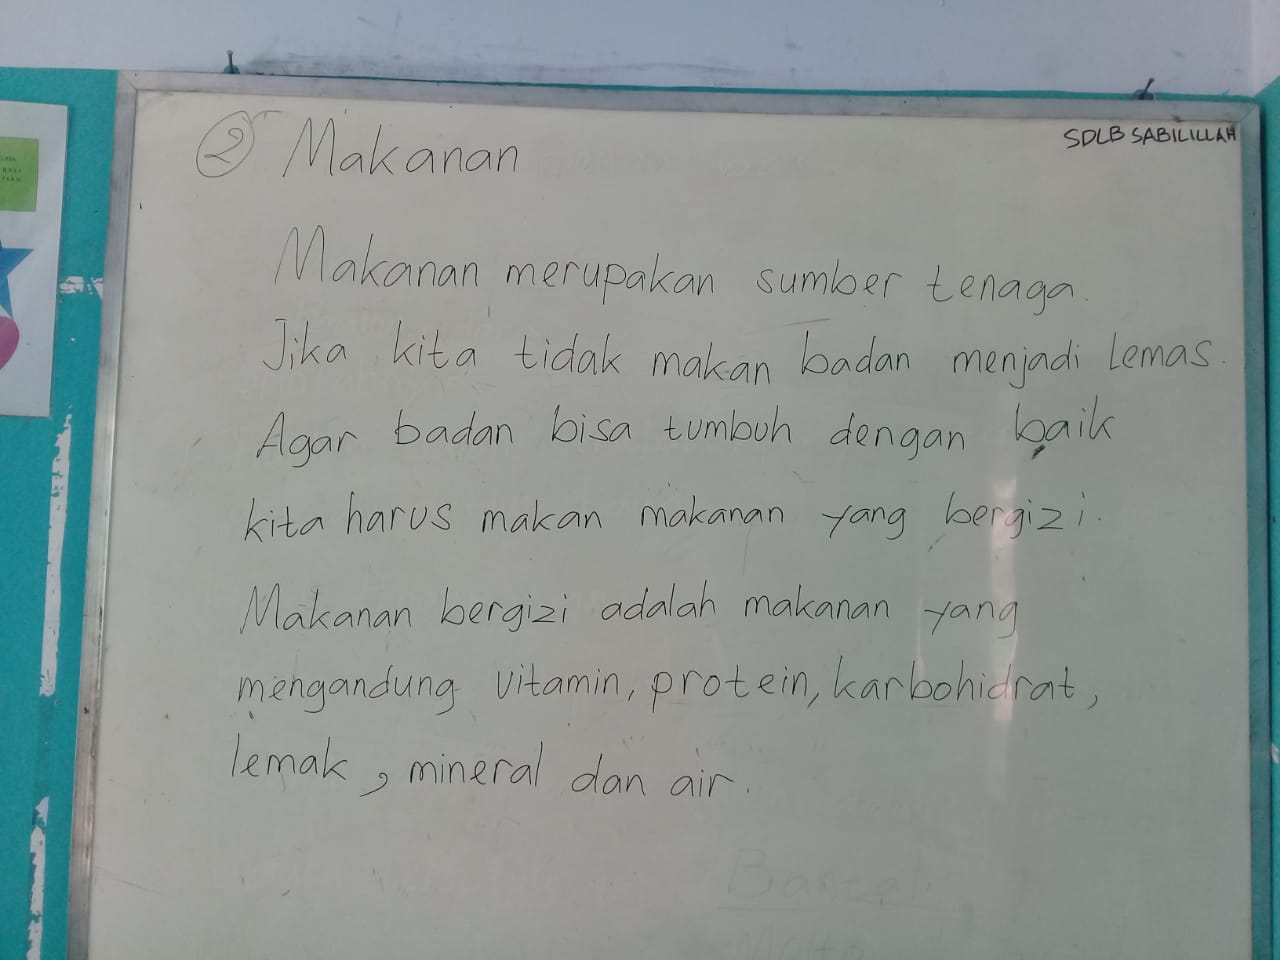 SDLB SABILILLAH
② Makanan
Makanan merupakan sumber tenaga.
Jika kita tidak makan badan menjadi lemas.
Agar badan bisa tumbuh dengan baik
kita harus makan makanan yang bergizi.
Makanan bergizi adalah makanan yang
mengandung vitamin, protein, karbohidrat,
lemak, mineral dan air.